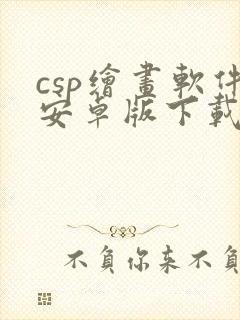 csp繪畫軟件
安卓版下載
不負你來不負